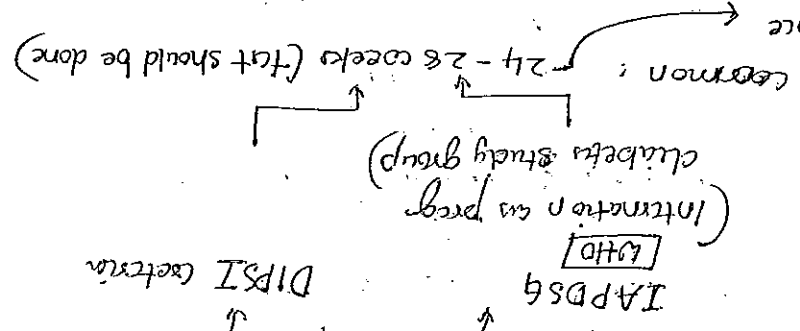 IAPDSG DIPSI Criteria
WHO
(Internation as preg
diabetes study group)
common : - 24 - 28 weeks (test should be done)